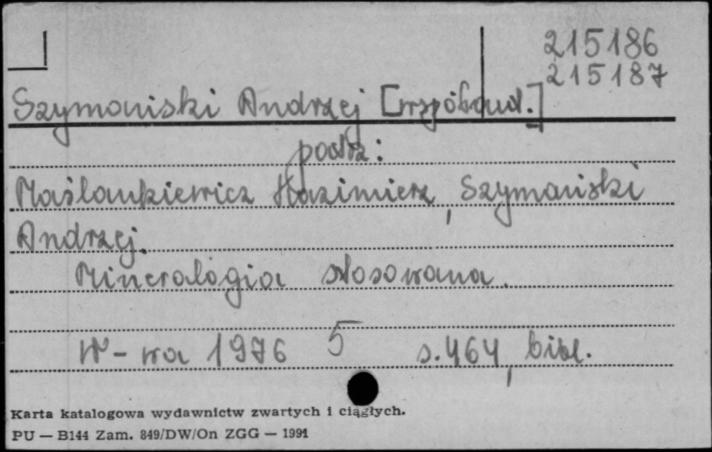 215186
215187
Szymański Andrzej [współaut.]
patrz:
Maślankiewicz Kazimierz, Szymański
Andrzej.
Mineralogia stosowana.
W-wa 1976 5 s. 464, bibl.
Karta katalogowa wydawnictw zwartych i ciągłych.
PU — B144 Zam. 849/DW/On ZGG — 1991